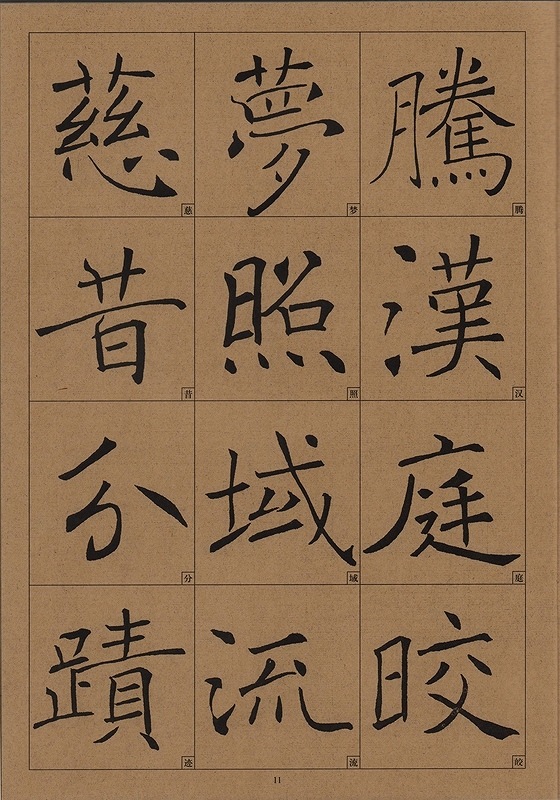 騰漢庭晈
腾汉庭皎
夢照域流
梦照域流
慈昔分蹟
慈昔分迹
11